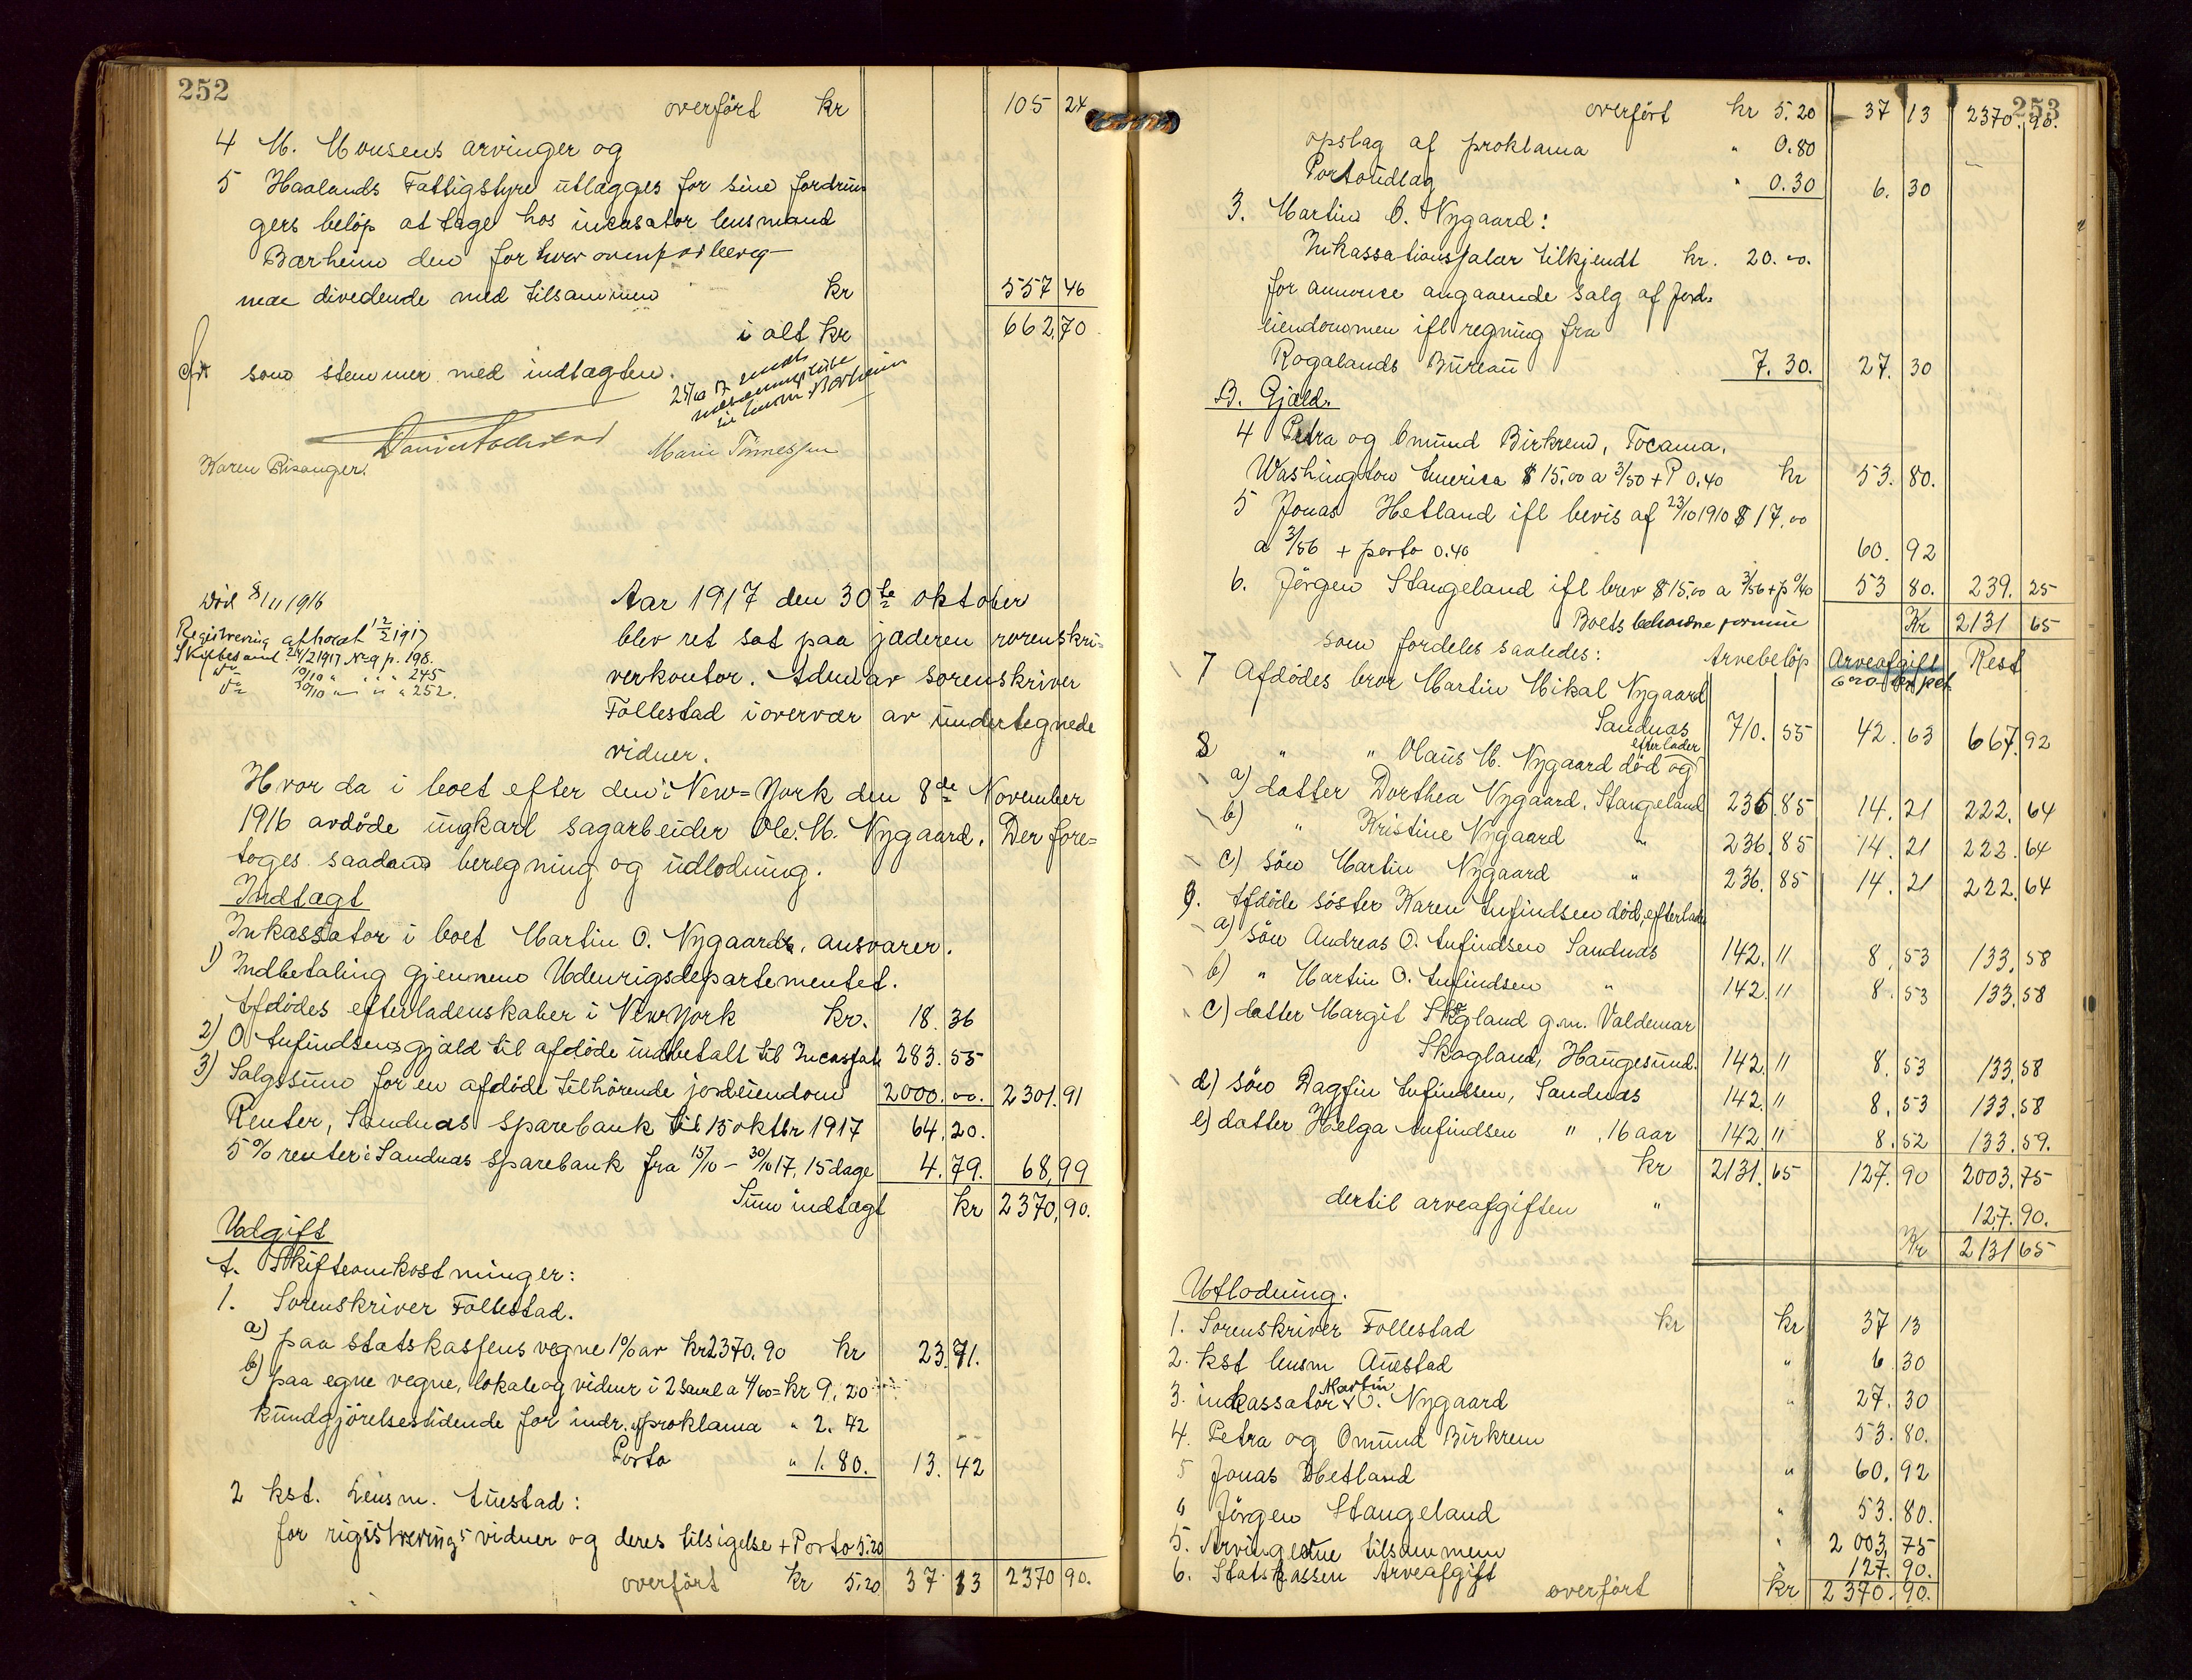 252
overført kr 105 24
4 M. Monsens arvinger og
5 Haalands Fattigstyre utlægges for sine fordrin
gers beløp at tage hos incasator lensmand
Barheim den for hver
ne dividende med tilsammen kr 557 46
i alt kr 662,70
som stemmer med indtægten.
Karen Risanger.
Marie Tønnessen
Aar 1917 den 30te oktober
blev ret sat paa jæderen sorenskri-
verkontor. Adm av sorenskriver
Follestad i overvær av undertegnede
vidner.
Død 8/11 1916
Registrering afholdt 12/2 1917
Skiftesaml. 24/2 1917 No 9 p. 198.
Do 10/10 " " " 245
Do 30/10 " " " 252.
Hvor da i boet efter den i New=York den 8de November
1916 avdøde ungkarl sagarbeider Ole. M. Nygaard. Der fore=
toges saadan beregning og udlodning.
Indtægt
Inkassator i boet Martin O. Nygaards, ansvarer.
1) Indbetaling gjennem Udenrigsdepartementet.
Afdødes efterladenskaber i New York kr. 18. 36
2) O Anfindsens gjæld til afdøde indbetalt til Incassat. 283. 55
3) Salgssum for en afdøde tilhørende jordeiendom 2000. oo. 2301. 91
Renter, Sandnæs Sparebank til 15 oktbr 1917 64. 20.
5% renter i Sandnæs Sparebank fra 15/10 - 30/10 17, 15 dage 4. 79. 68,99
Sum indtægt kr 2370,90.
Udgift
A. Skifteomkostninger:
1. Sorenskriver Follestad.
a) paa statskassens vegne 1% av kr 2370. 90 kr 23. 71.
b) paa egne vegne, lokale og vidner i 2 saml a 4/60 = kr 9. 20
Kundgjørelsestidende for indr. af proklama " 2. 42
Porto " 1. 80. 13. 42
2 kst. Lensm. Auestad:
for registrerings vidner og deres tilsigelse + Porto 5.20
overført kr 5.20 37 13 2370 90.
253
overført kr 5.20 37 13 2370. 90.
opslag af proklama " 0.80
Portoudlæg " 0.30 6. 30
3. Martin O. Nygaard:
Inkassationssalær tilkjendt kr. 20. oo.
for annonce angaaende salg af jord-
eiendommen ifl regning fra
Rogalands Bureau 7. 30. 27. 30
B. Gjæld.
4 Petra og Omund Birkrem, Tocama,
Washington America $ 15.00 a 3/50 + P 0.40 kr 53. 80.
5 Jonas Hetland ifl bevis af 23/10 1910 $ 17.00
a 3/56 + porto 0.40 60. 92
6. Jørgen Stangeland ifl brev $ 15.00 a 3/56 + p 0/40 53 80. 239. 25
Boets beholdne formue Kr 2131 65
som fordeles saaledes: Arvebeløp Arveafgift Rest
7 Afdødes bror Martin Mikal Nygaard
Sandnæs 710. 55 42. 63 667. 92
8 " " Olaus M. Nygaard død og efterlader
a) datter Dorthea Nygaard, Stangeland 236. 85 14. 21 222. 64
b) " Kristine Nygaard " 236. 85 14. 21 222. 64
c) søn Martin Nygaard " 236. 85 14. 21 222. 64
9. Afdøde søster Karen Anfindsen død, efterlader
a) søn Andreas O. Anfindsen Sandnæs 142. 11 8. 53 133. 58
b) " Martin O. Anfindsen " 142. 11 8. 53 133. 58
c) datter Margit Skogland g.m. Valdemar
Skogland, Haugesund. 142. 11 8. 53 133. 58
d) søn Dagfin Anfindsen, Sandnæs 142. 11 8. 53 133. 58
e) datter Helga Anfindsen " , 16 aar 142 11 8. 52 133. 59.
kr 2131. 65 127. 90 2003. 75
dertil arveafgiften " 127. 90.
Kr 2131 65
Utlodning.
1. Sorenskriver Follestad kr kr 37 13
2. kst lensm Auestad " 6. 30
3. inkassator Martin O. Nygaard " 27. 30
4. Petra og Omund Birkrem 53. 80.
5 Jonas Hetland " 60. 92
6 Jørgen Stangeland " 53. 80.
5. Arvingerne tilsammen " 2 003, 75
6. Statskassen Arveafgift " 127. 90.
overført kr 2 370. 90.